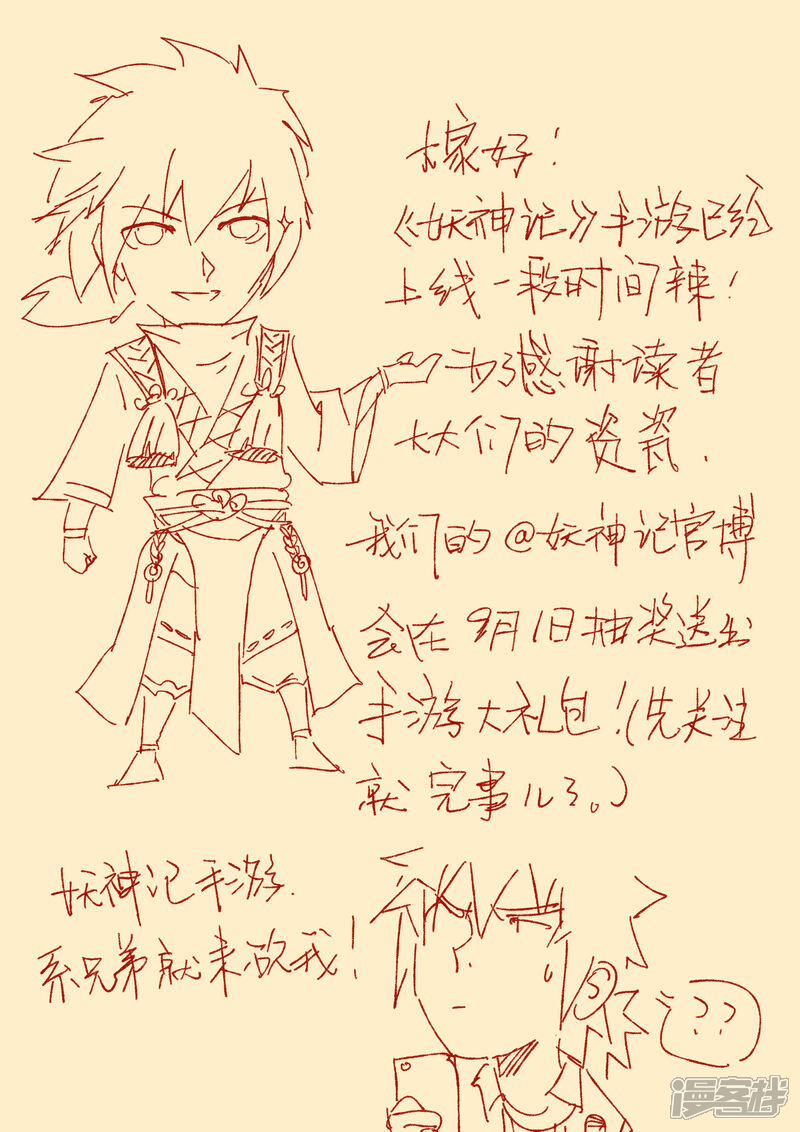 大家好！
《妖神记》手游已经
上线一段时间辣！
为了感谢读者
大大们的资瓷.
我们的@妖神记官博
会在9月1日抽奖送出
手游大礼包！(先关注
就完事儿了。)
妖神记手游.
系兄弟就来砍我！
??
漫客栈